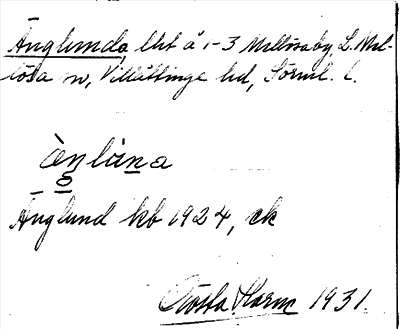 Änglunda, lht å 1-3 Mellösaby, L. Mel-
lösa sn, Villåttinge hd, Sörml. l.
Änglund kb 1924, ek
Gösta 1931.